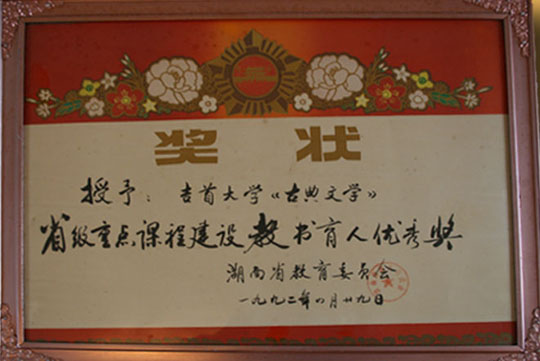 奖状
授予：吉首大学《古典文学》
省级重点课程建设教书育人优秀奖
湖南省教育委员会
一九九二年四月廿九日